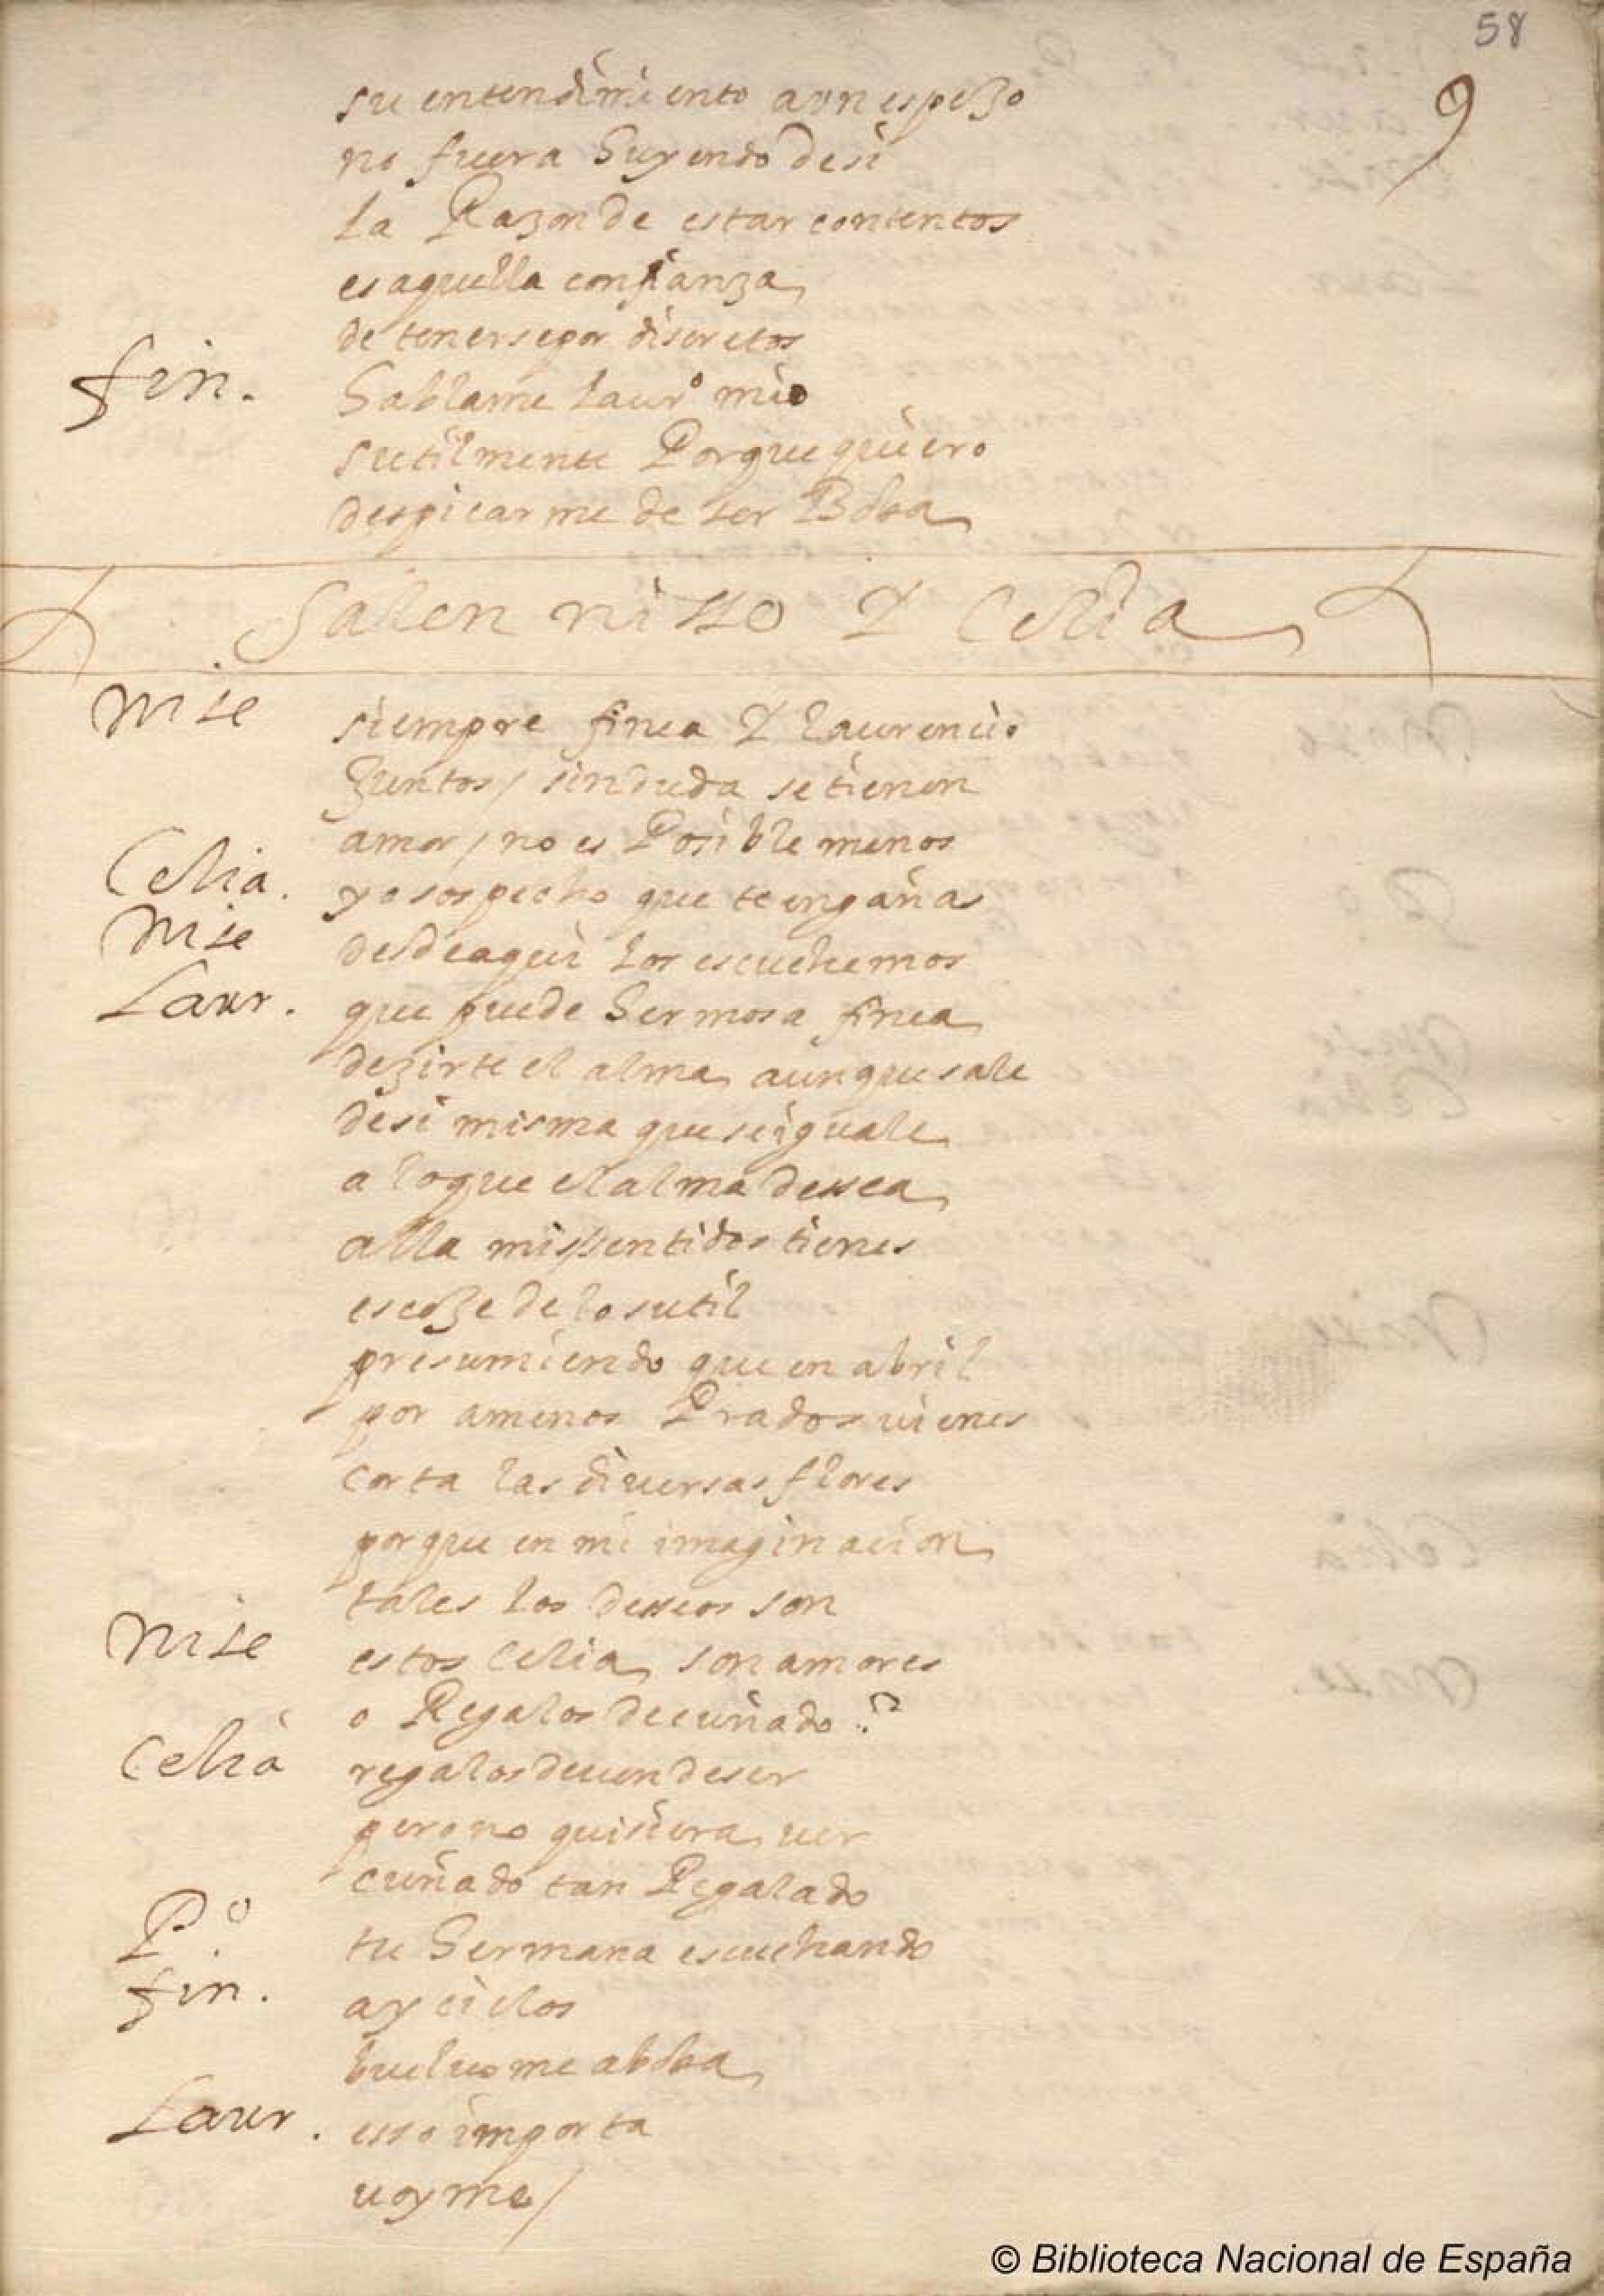 58
9
su entendimiento aun espejo
no fuera huyendo de si
la Razon de estar contentos
es aquella confianza
de tenerse por discretos
fin. hablame laurº mio
sutilmente Porque quiero
despicarme de ser Boba
Salen nisse y Celia
nise siempre finea y laurencio
Juntos / sin duda se tienen
amor / no es Posible menos
Celia. yo sospecho que te engañas
nise desde aqui los escuchemos
Laur. que puede hermosa finea
dezirte el alma aunque sale
de si misma que se iguale
a lo que el alma dessea
alla mis sentidos tienes
escoje de lo sutil
presumiendo que en abril
por amenos Prados uienes
corta las diuersas flores
porque en mi imaginacion
tales los desseos son
nise estos Celia son amores
o Regalos de cuñado?
Celia regalos deuen de ser
pero no quisiera uer
cuñado tan Regalado
Pº. tu hermana escuchando
fin. ay cielos
bueluome a boba
Laur. esso importa
uoyme /
© Biblioteca Nacional de España